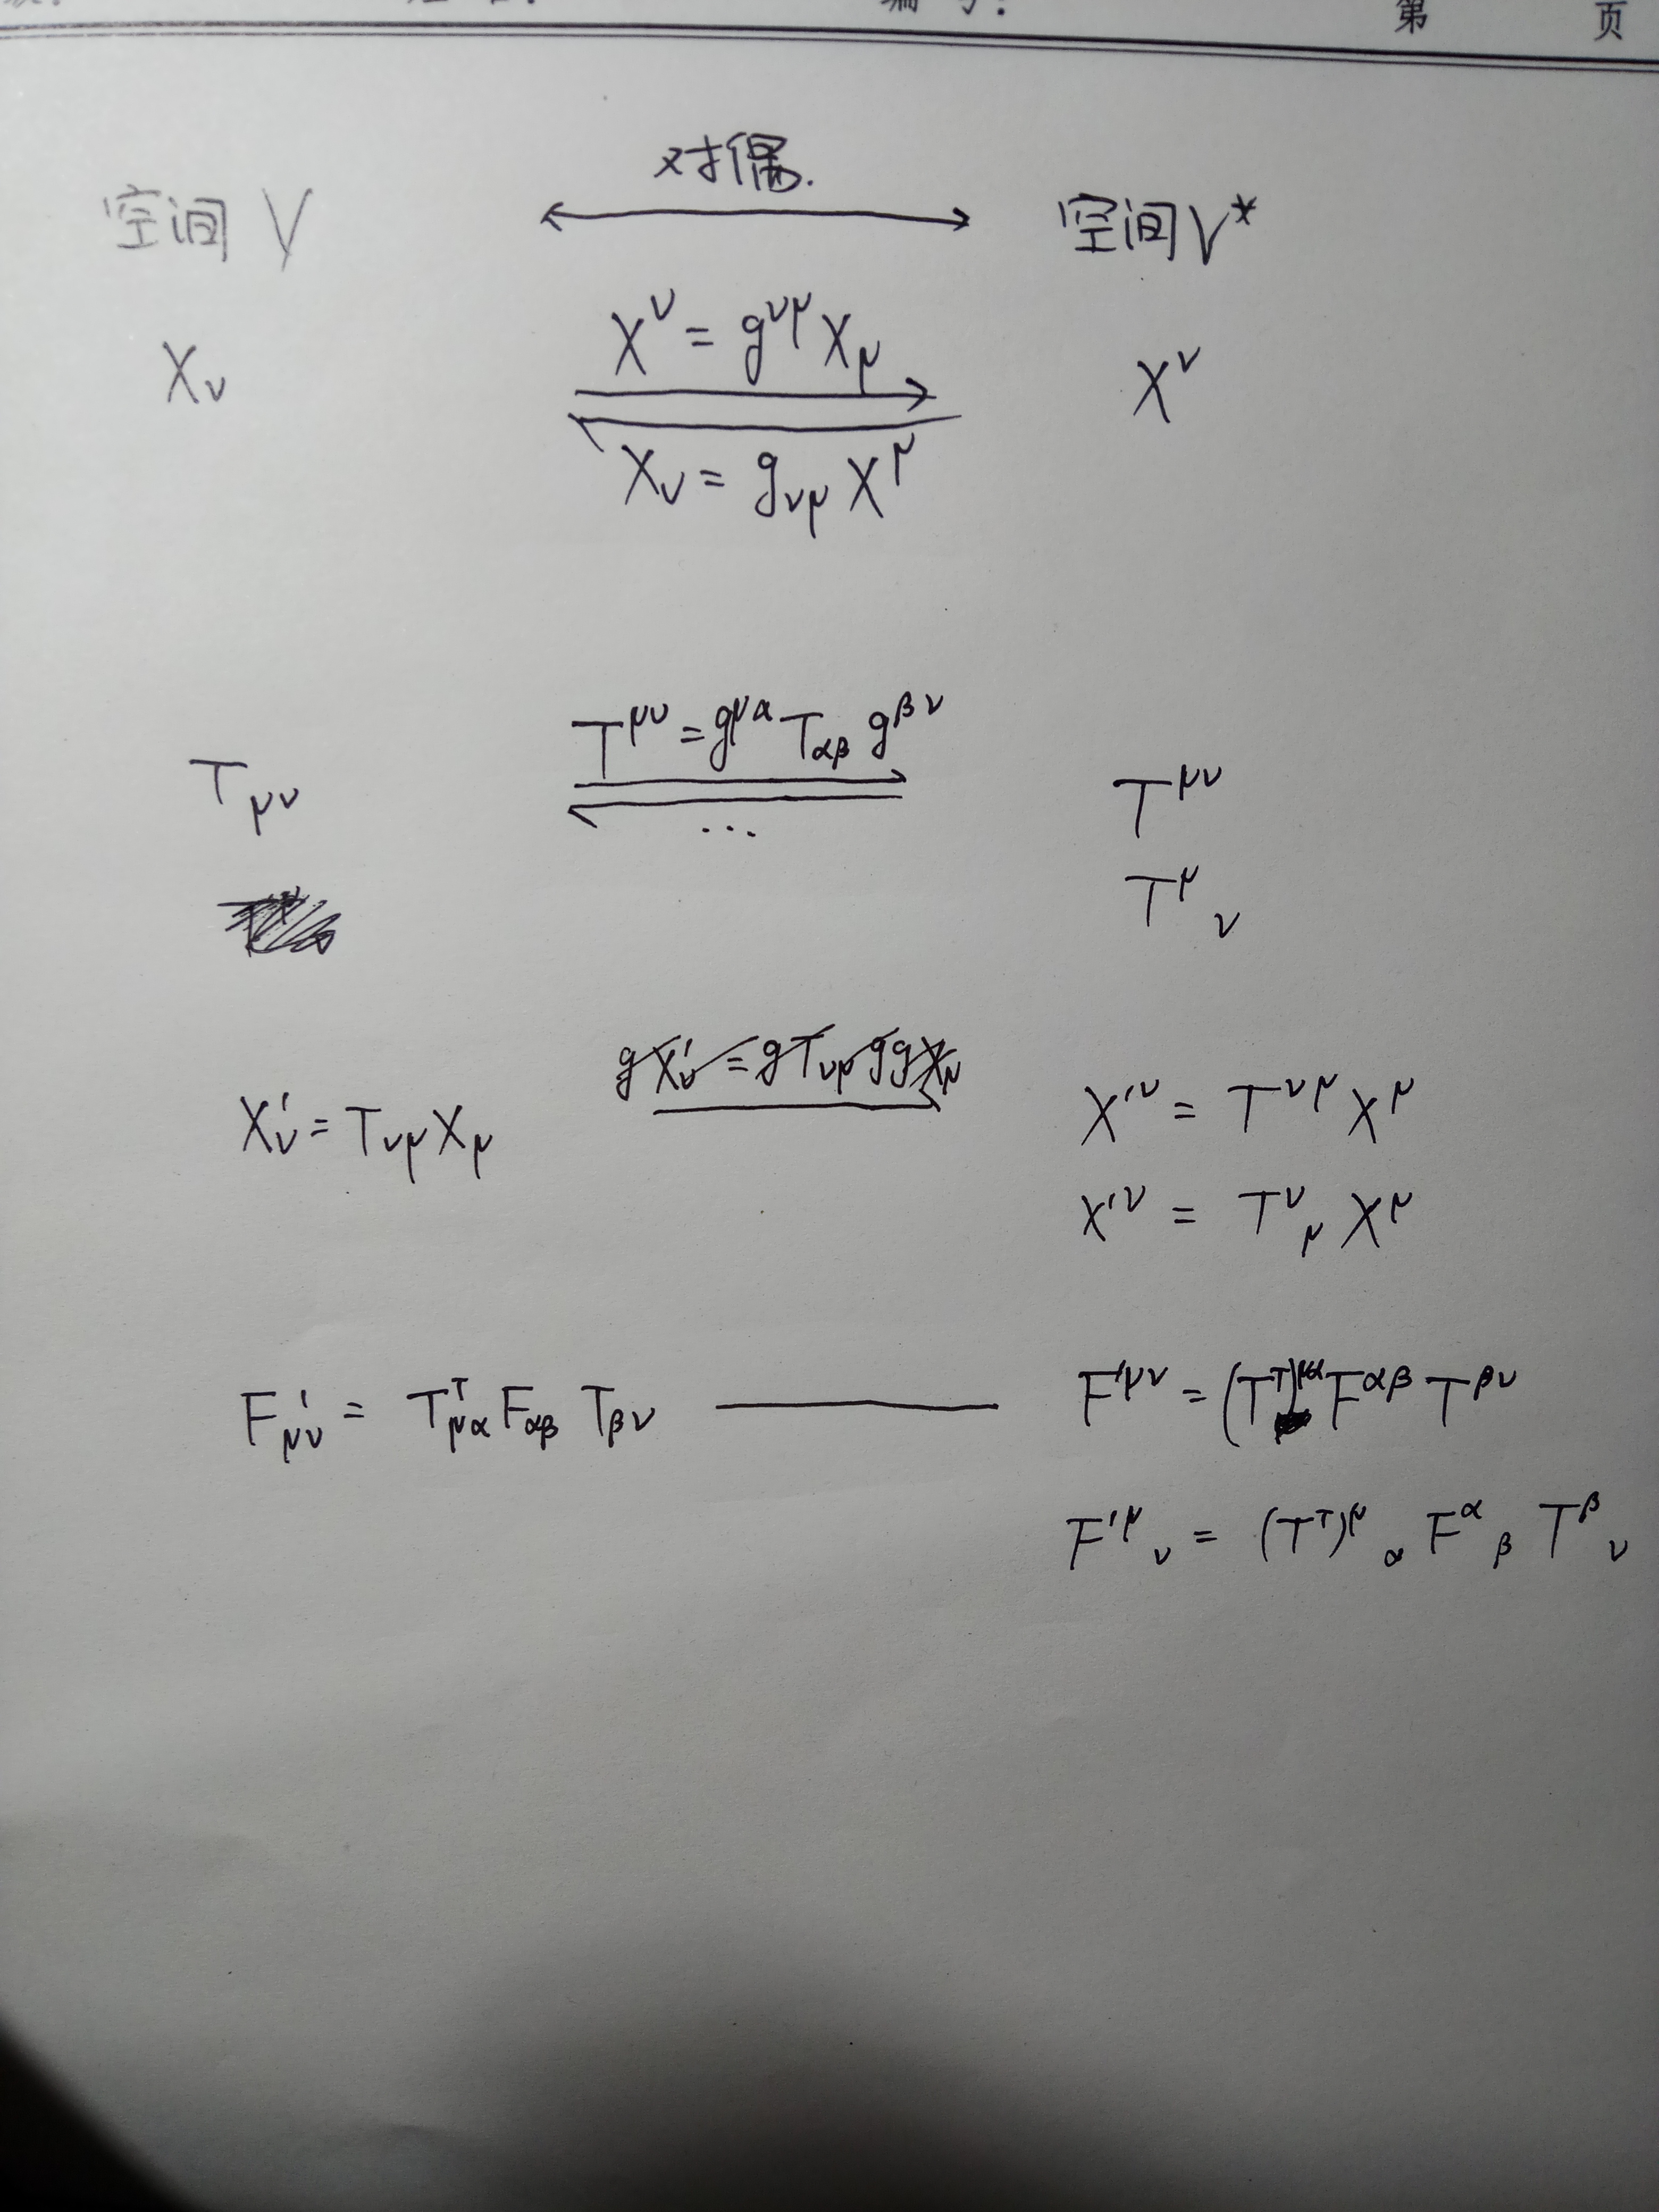 第 页
对偶.
空间 V 空间 V*
X^ν = g^{νμ} X_μ
X_ν X^ν
X_ν = g_{νμ} X^μ
T^{μν} = g^{μα} T_{αβ} g^{βν}
T_{μν} T^{μν}
...
T^μ_ν
g X'_ν = g T_{νμ} g g X_μ
X'_ν = T_{νμ} X_μ X'^ν = T^{νμ} X^μ
X'^ν = T^ν_μ X^μ
F'_{μν} = T^T_{μα} F_{αβ} T_{βν} F'^{μν} = (T^T)^{μα} F^{αβ} T^{βν}
F'^μ_ν = (T^T)^μ_α F^α_β T^β_ν